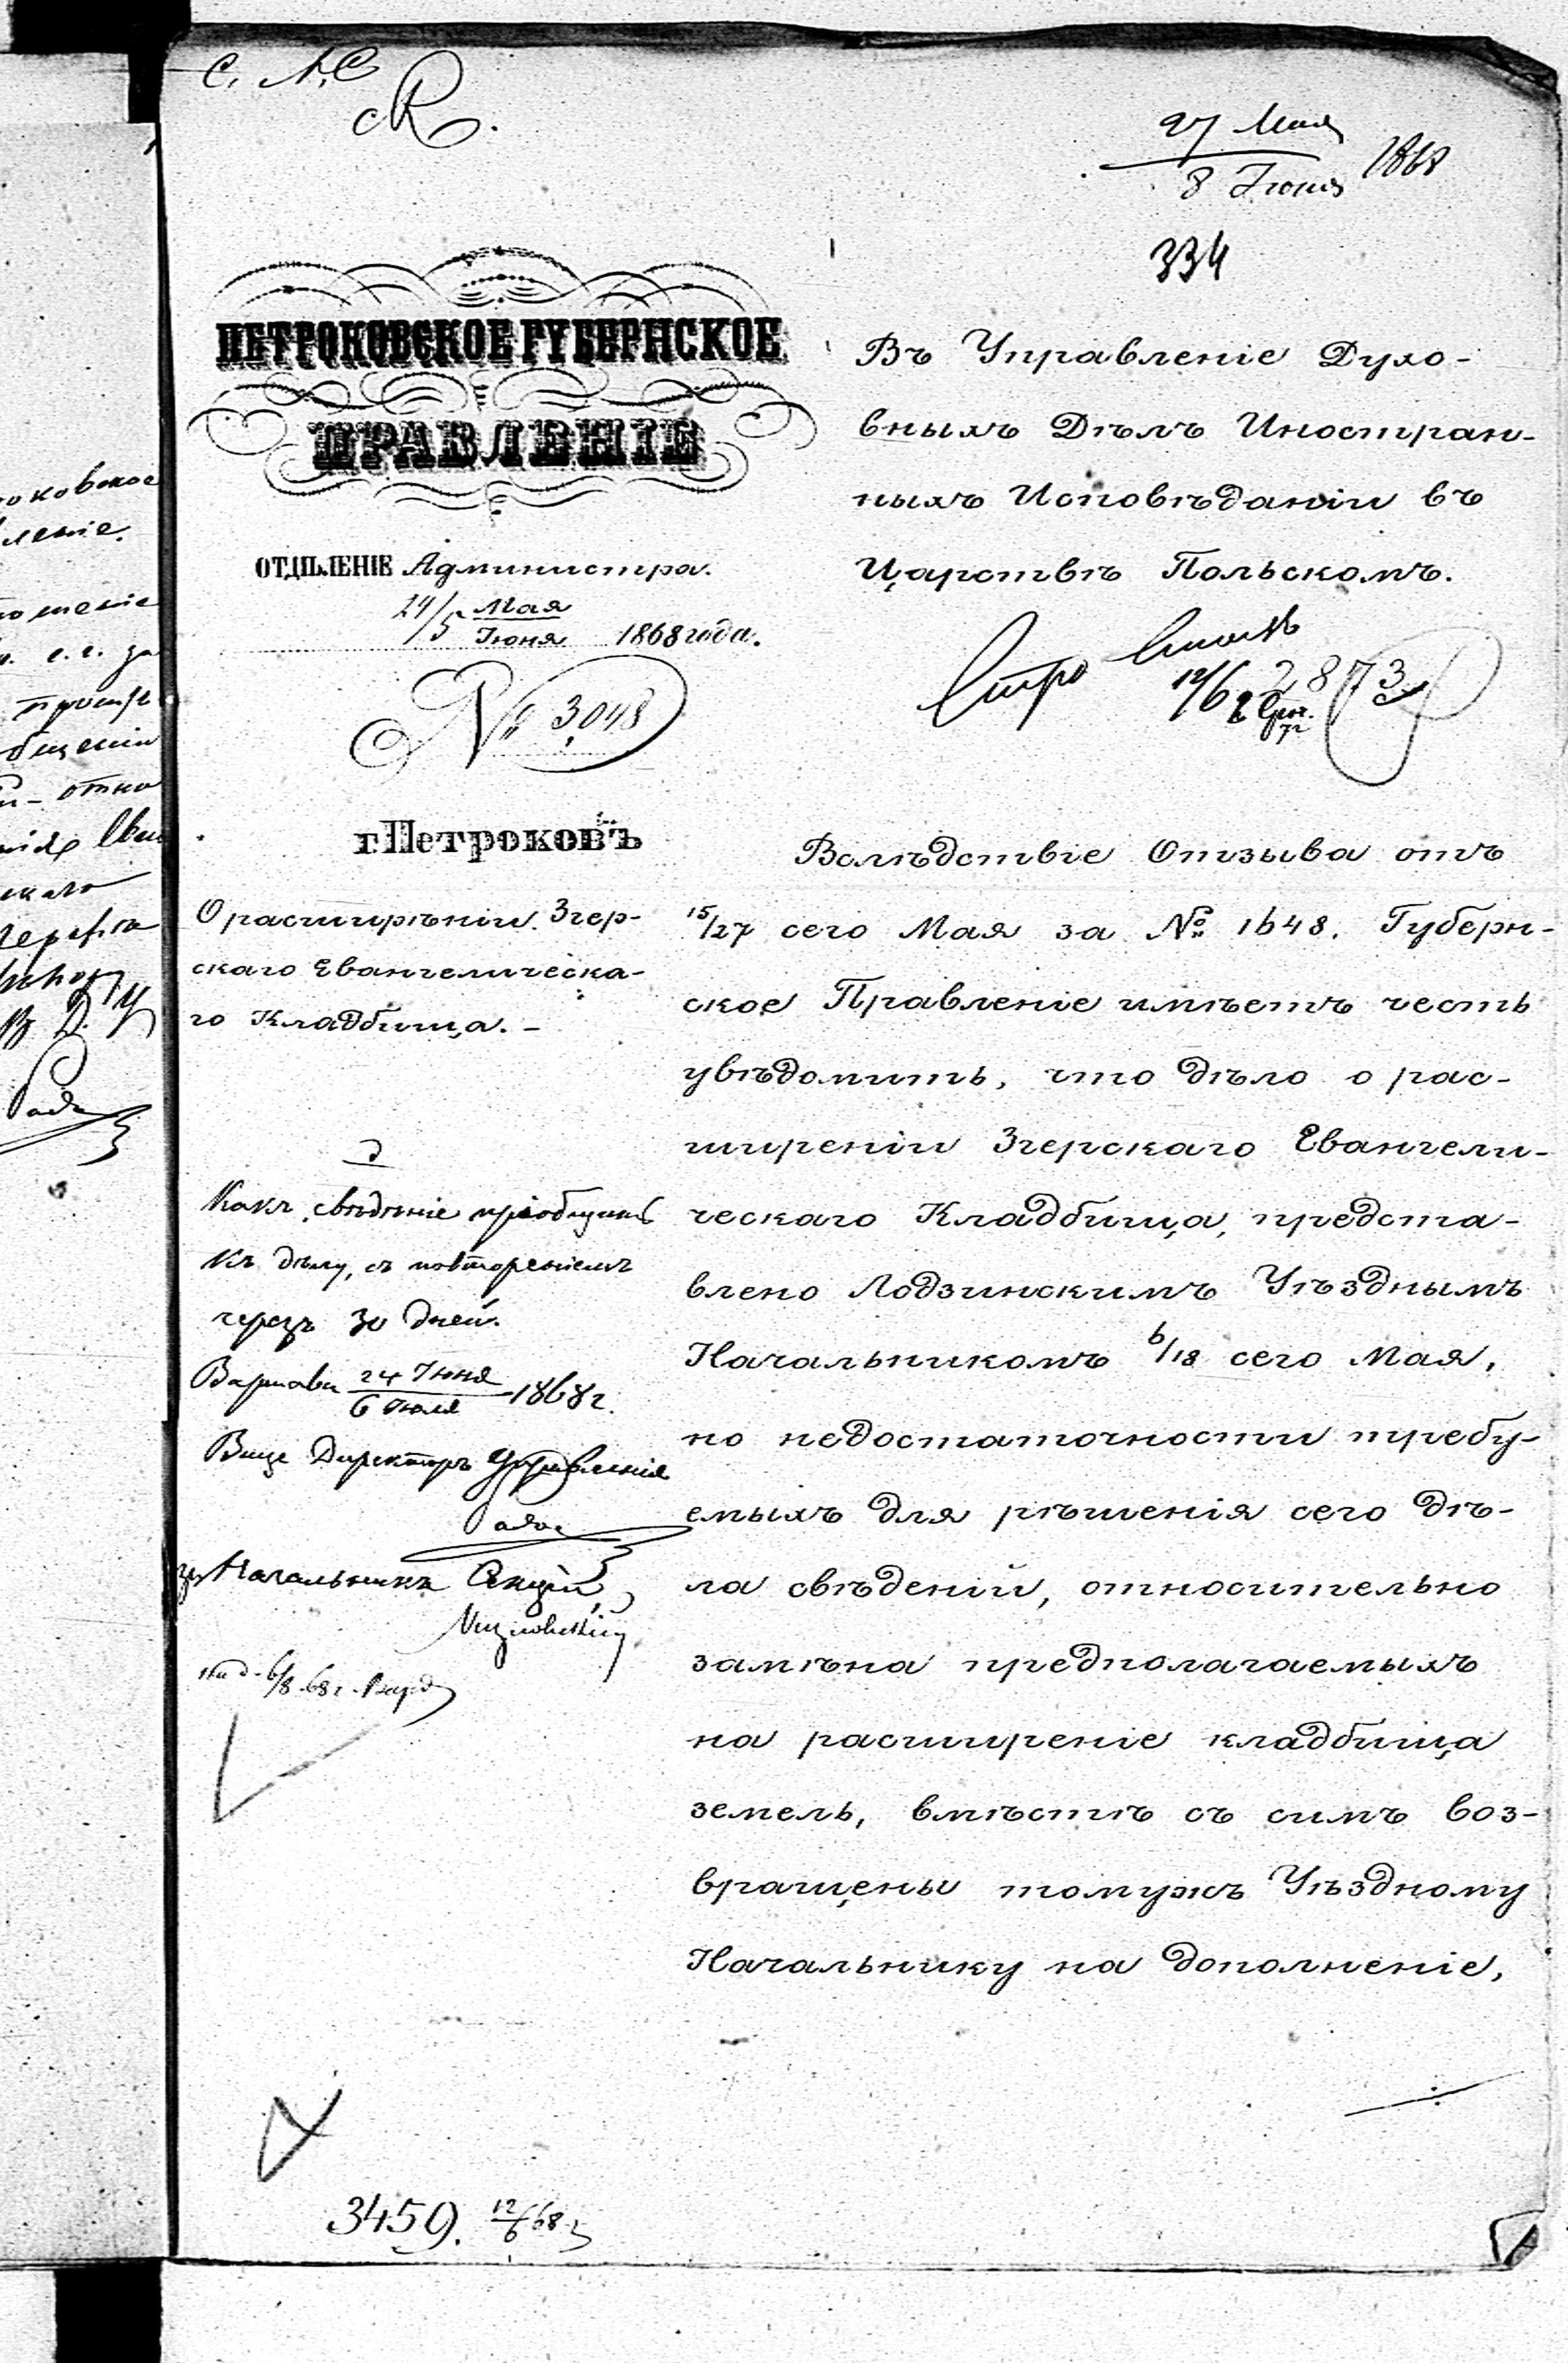 27 Мая
8 Іюня 1868
334
ПЕТРОКОВСКОЕ ГУБЕРНСКОЕ
ПРАВЛЕНІЕ
ОТДѢЛЕНІЕ Администра.
24/5 Мая
Іюня 1868 года.
№ 3048
г Петроковъ
О расширѣніи Згер-
скаго Евангелическа-
го Кладбища. -
Въ Управленіе Духо-
вныхъ Дѣлъ Иностран-
ныхъ Исповѣданіи въ
Царствѣ Польскомъ.
12/6 2873
Вслѣдствіе Отзыва отъ
15/27 сего Мая за № 1648. Губерн-
ское Правленіе имѣетъ честь
увѣдомить, что дѣло о рас-
ширеніи Згерскаго Евангели-
ческаго Кладбища, предста-
влено Лодзинскимъ Уѣзднымъ
Начальникомъ 6/18 сего Мая,
но недостаточности требу-
емыхъ для рѣшенія сего дѣ-
ла свѣденій, относительно
замѣна предполагаемыхъ
на расширеніе кладбища
земель, вмѣстѣ съ симъ воз-
вращены томужъ Уѣздному
Начальнику на дополненіе,
Какъ свѣдѣніе пріобщить
къ дѣлу, съ повтореніемъ
черезъ 30 дней.
Варшава 24 Іюня
6 Іюля 1868 г.
Вице Директоръ Управленія
Начальникъ Секціи
3459. 12/6 68
оковское
леніе.